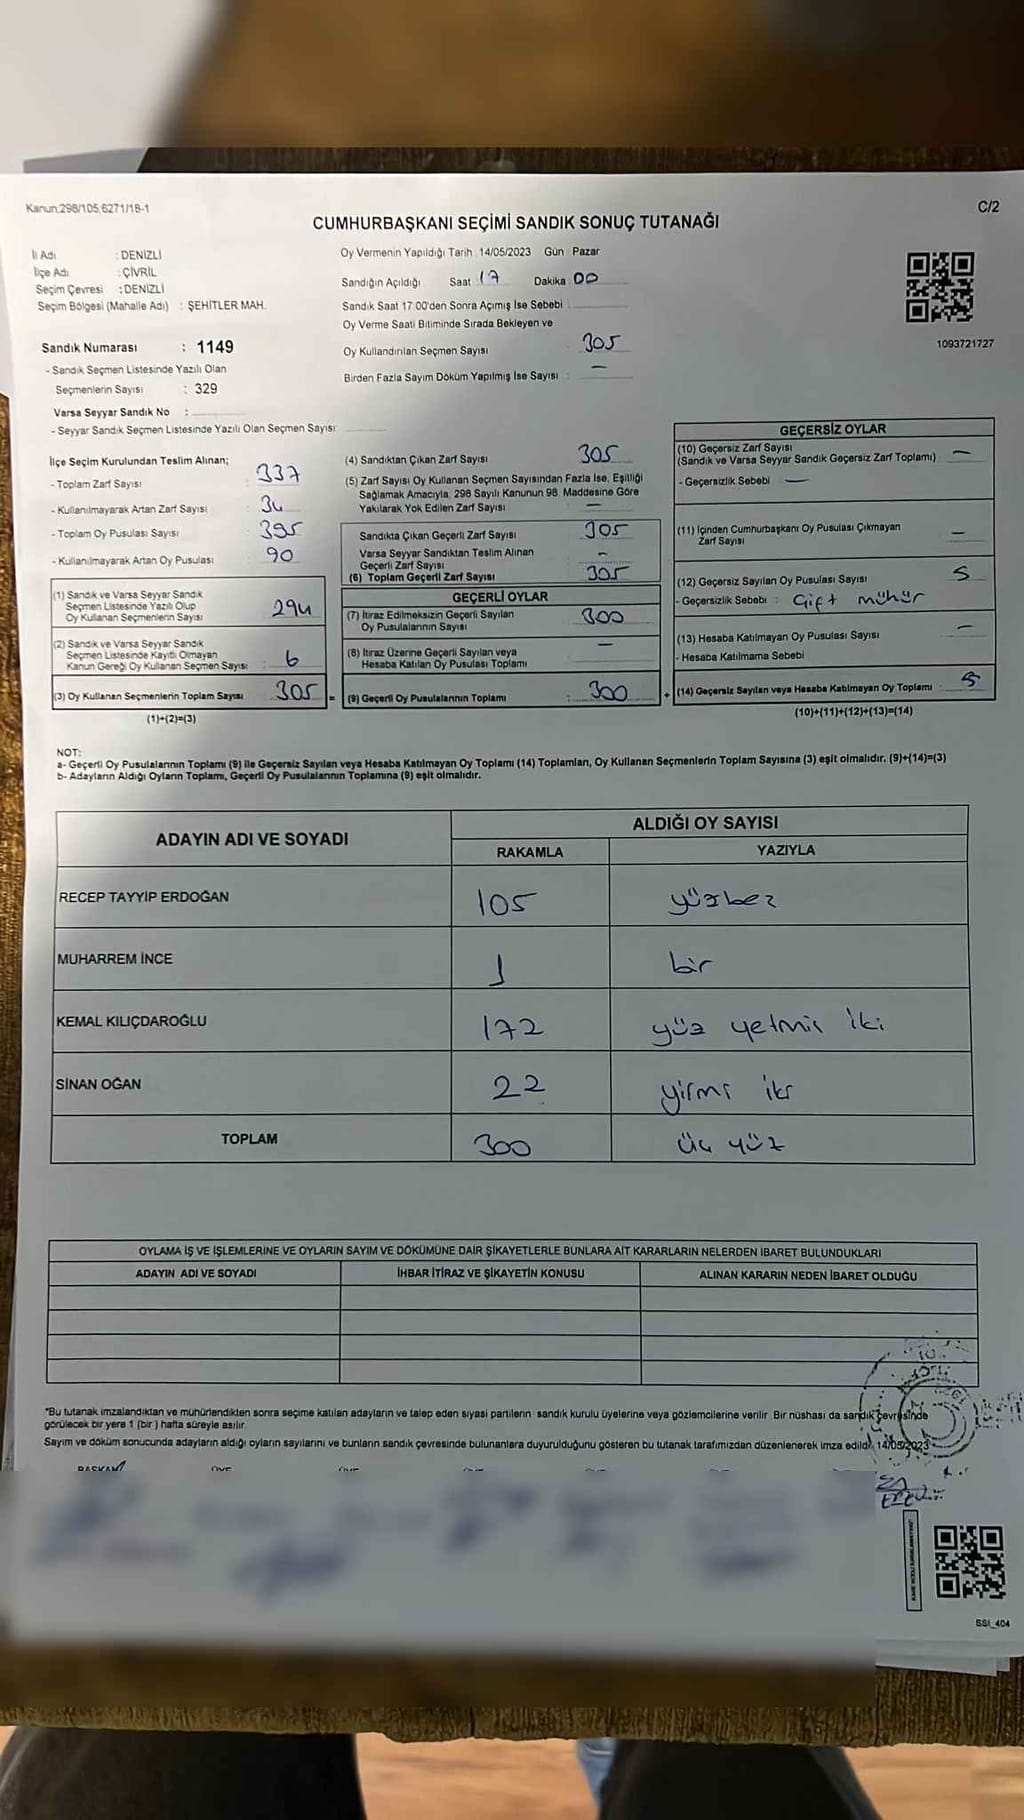 Kanun;298/105,6271/18-1
C/2
CUMHURBAŞKANI SEÇİMİ SANDIK SONUÇ TUTANAĞI
İl Adı : DENİZLİ
İlçe Adı : ÇİVRİL
Seçim Çevresi : DENİZLİ
Seçim Bölgesi (Mahalle Adı) : ŞEHİTLER MAH.
Sandık Numarası : 1149
- Sandık Seçmen Listesinde Yazılı Olan
Seçmenlerin Sayısı : 329
Varsa Seyyar Sandık No :
- Seyyar Sandık Seçmen Listesinde Yazılı Olan Seçmen Sayısı
Oy Vermenin Yapıldığı Tarih 14/05/2023 Gün Pazar
Sandığın Açıldığı Saat 17 Dakika 00
Sandık Saat 17.00'den Sonra Açımış İse Sebebi
Oy Verme Saati Bitiminde Sırada Bekleyen ve
Oy Kullandırılan Seçmen Sayısı 305
Birden Fazla Sayım Döküm Yapılmış İse Sayısı : —
1093721727
İlçe Seçim Kurulundan Teslim Alınan;
- Toplam Zarf Sayısı : 337
- Kullanılmayarak Artan Zarf Sayısı : 34
- Toplam Oy Pusulası Sayısı : 395
- Kullanılmayarak Artan Oy Pusulası : 90
(1) Sandık ve Varsa Seyyar Sandık
Seçmen Listesinde Yazılı Olup
Oy Kullanan Seçmenlerin Sayısı 294
(2) Sandık ve Varsa Seyyar Sandık
Seçmen Listesinde Kayıtlı Olmayan
Kanun Gereği Oy Kullanan Seçmen Sayısı 6
(3) Oy Kullanan Seçmenlerin Toplam Sayısı 305 =
(1)+(2)=(3)
(4) Sandıktan Çıkan Zarf Sayısı 305
(5) Zarf Sayısı Oy Kullanan Seçmen Sayısından Fazla İse, Eşitliği
Sağlamak Amacıyla, 298 Sayılı Kanunun 98. Maddesine Göre
Yakılarak Yok Edilen Zarf Sayısı —
Sandıkta Çıkan Geçerli Zarf Sayısı 305
Varsa Seyyar Sandıktan Teslim Alınan
Geçerli Zarf Sayısı -
(6) Toplam Geçerli Zarf Sayısı 305
GEÇERLİ OYLAR
(7) İtiraz Edilmeksizin Geçerli Sayılan
Oy Pusulalarının Sayısı 300
(8) İtiraz Üzerine Geçerli Sayılan veya
Hesaba Katılan Oy Pusulası Toplamı —
(9) Geçerli Oy Pusulalarının Toplamı : 300 +
GEÇERSİZ OYLAR
(10) Geçersiz Zarf Sayısı
(Sandık ve Varsa Seyyar Sandık Geçersiz Zarf Toplamı) —
- Geçersizlik Sebebi —
(11) İçinden Cumhurbaşkanı Oy Pusulası Çıkmayan
Zarf Sayısı —
(12) Geçersiz Sayılan Oy Pusulası Sayısı 5
- Geçersizlik Sebebi : Çift mühür
(13) Hesaba Katılmayan Oy Pusulası Sayısı —
- Hesaba Katılmama Sebebi
(14) Geçersiz Sayılan veya Hesaba Katılmayan Oy Toplamı 5
(10)+(11)+(12)+(13)=(14)
NOT:
a- Geçerli Oy Pusulalarının Toplamı (9) ile Geçersiz Sayılan veya Hesaba Katılmayan Oy Toplamı (14) Toplamları, Oy Kullanan Seçmenlerin Toplam Sayısına (3) eşit olmalıdır. (9)+(14)=(3)
b- Adayların Aldığı Oyların Toplamı, Geçerli Oy Pusulalarının Toplamına (9) eşit olmalıdır.
ADAYIN ADI VE SOYADI
ALDIĞI OY SAYISI
RAKAMLA YAZIYLA
RECEP TAYYİP ERDOĞAN 105 yüzbeş
MUHARREM İNCE 1 bir
KEMAL KILIÇDAROĞLU 172 yüz yetmiş iki
SİNAN OĞAN 22 yirmi iki
TOPLAM 300 üç yüz
OYLAMA İŞ VE İŞLEMLERİNE VE OYLARIN SAYIM VE DÖKÜMÜNE DAİR ŞİKAYETLERLE BUNLARA AİT KARARLARIN NELERDEN İBARET BULUNDUKLARI
ADAYIN ADI VE SOYADI İHBAR İTİRAZ VE ŞİKAYETİN KONUSU ALINAN KARARIN NEDEN İBARET OLDUĞU
*Bu tutanak imzalandıktan ve mühürlendikten sonra seçime katılan adayların ve talep eden siyasi partilerin sandık kurulu üyelerine veya gözlemcilerine verilir. Bir nüshası da sandık çevresinde
görülecek bir yere 1 (bir) hafta süreyle asılır.
Sayım ve döküm sonucunda adayların aldığı oyların sayılarını ve bunların sandık çevresinde bulunanlara duyurulduğunu gösteren bu tutanak tarafımızdan düzenlenerek imza edildi. 14/05/2023
BAŞKAN ÜYE ÜYE
SSI_404